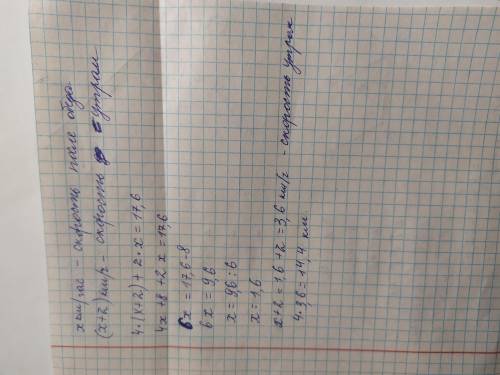 x км/час - скорость после обеда
(x+2) км/ч - скорость утром
4·(x+2)+2·x=17,6
4x+8+2x=17,6
6x=17,6-8
6x=9,6
x=9,6:6
x=1,6
x+2=1,6+2=3,6 км/ч - скорость утром
4·3,6=14,4 км